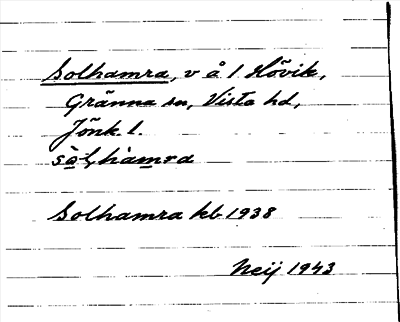 Solhamra, v å 1 Hövik,
Gränna sn, Vista hd,
Jönk. l.
sòlhàmra
Solhamra kb 1938
Neij 1943